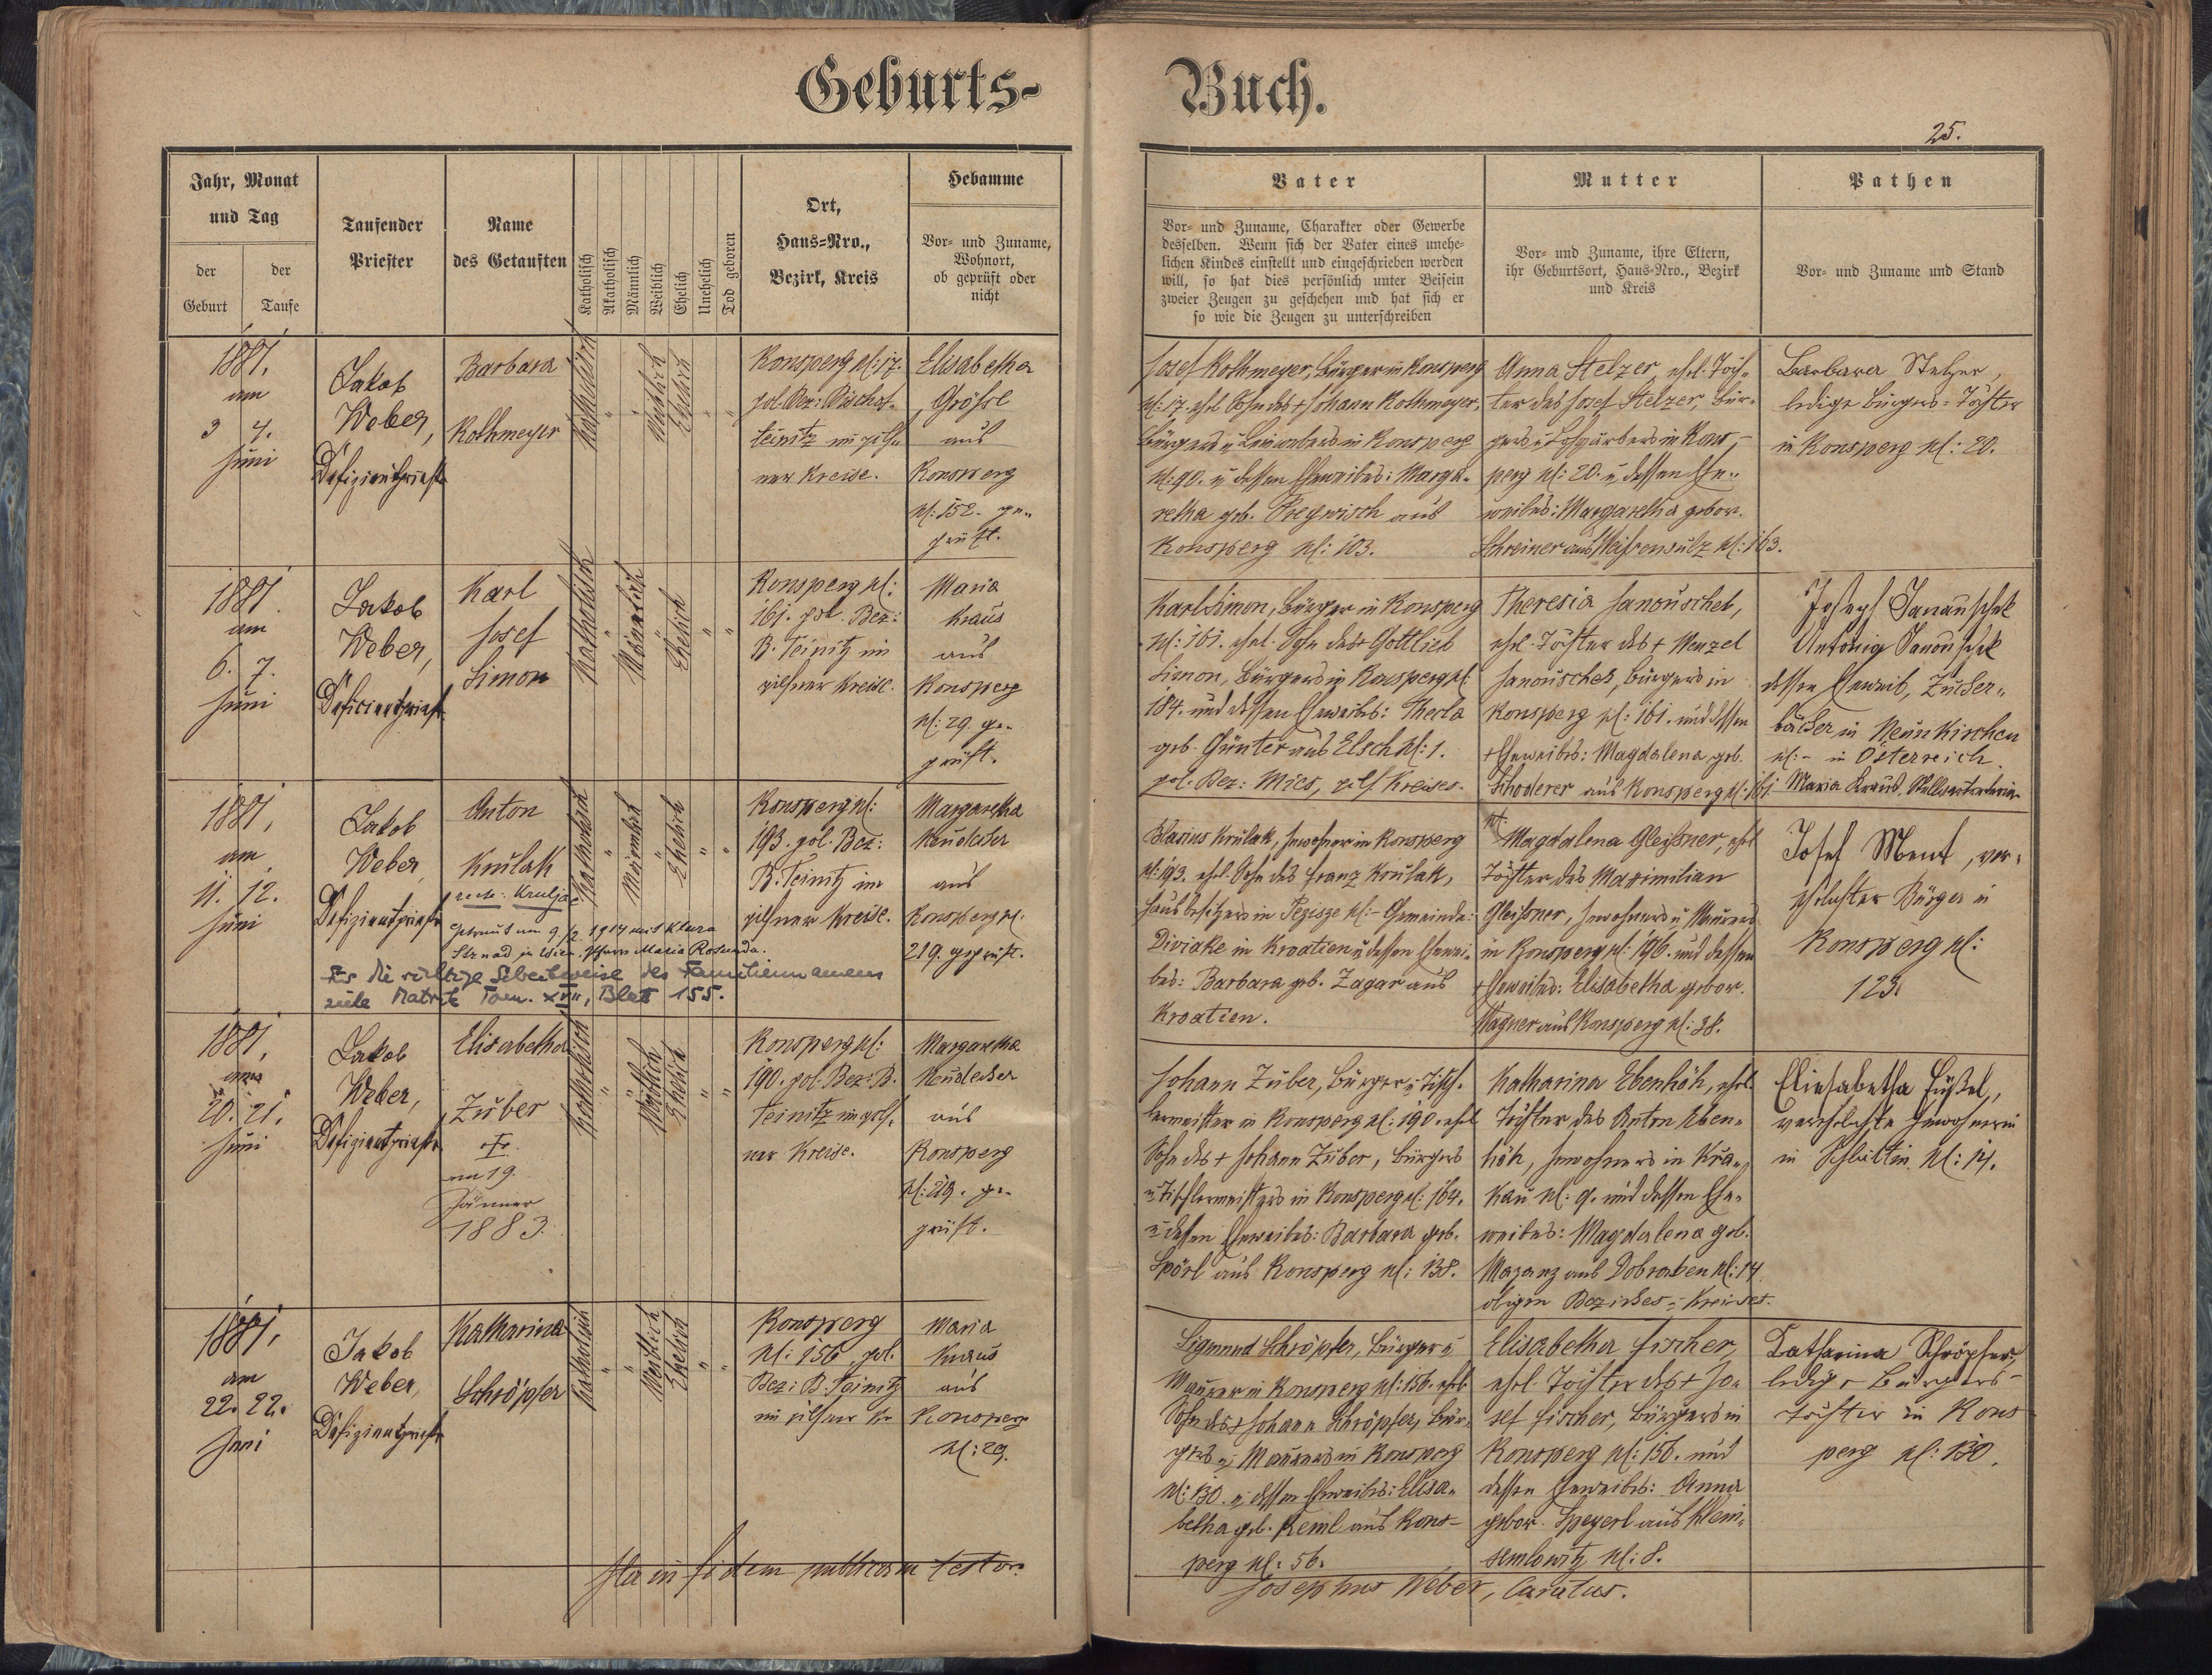 Geburts-
Buch.
25.
Jahr, Monat
und Tag
der
Geburt
der
Taufe
Taufender
Priester
Name
des Getauften
Katholisch
Akatholisch
Männlich
Weiblich
Ehelich
Unehelich
Tod geboren
Ort,
Haus-Nro.,
Bezirk, Kreis
Hebamme
Vor- und Zuname,
Wohnort,
ob geprüft oder
nicht
Vater
Vor- und Zuname, Charakter oder Gewerbe
desselben. Wenn sich der Vater eines unehe-
lichen Kindes einstellt und eingeschrieben werden
will, so hat dies persönlich unter Beisein
zweier Zeugen zu geschehen und hat sich er
so wie die Zeugen zu unterschreiben
Mutter
Vor- und Zuname, ihre Eltern,
ihr Geburtsort, Haus-Nro., Bezirk
und Kreis
Pathen
Vor- und Zuname und Stand
1881.
am
3 4.
Juni
Jakob
Weber,
Defizientpriester
Barbara
Rothmeyer
Katholisch
Weiblich
Ehelich
Ronsperg N: 17.
pol. Bez: Bischof-
teinitz im pils-
ner Kreise.
Elisabetha
Größl
aus
Ronsperg
N: 152. ge-
prüft.
Josef Rothmeyer, Bürger in Ronsperg
N: 17. ehel. Sohn des + Johann Rothmeyer,
Bürgers u. in Ronsperg
N: 90. u. dessen Eheweibes: Marga-
retha geb. aus
Ronsperg N: 103.
Anna Stelzer, ehel. Toch-
ter des Josef Stelzer, Bür-
gers u. Lohgärbers in Rons-
perg N: 20. u. dessen Ehe-
weibes: Margaretha gebor.
Schreiner aus Weißensulz N: 163.
Barbara Stelzer,
ledige Bürgers-Tochter
in Ronsperg N: 20.
1881.
am
6. 7.
Juni
Jakob
Weber,
Deficientpriester
Karl
Josef
Simon
Katholisch
Männlich
Ehelich
Ronsperg N:
161. pol. Bez:
B. Teinitz im
pilsner Kreise.
Maria
Kraus
aus
Ronsperg
N: 29. ge-
prüft.
Karl Simon, Bürger in Ronsperg
N: 161. ehel. Sohn des + Gottlieb
Simon, Bürgers in Ronsperg N:
184. und dessen Eheweibes: Thecla
geb. Günter aus Elsch N: 1.
pol. Bez: Mies, pils. Kreises.
Theresia Janouschek,
ehel. Tochter des + Wenzel
Janouschek, Bürgers in
Ronsperg N: 161. und dessen
+ Eheweibes: Magdalena geb.
Schoderer aus Ronsperg N: 161.
Joseph Janauschek
Antonia Janouschek
dessen Eheweib, Zucker-
bäcker in Neunkirchen
N: - in Österreich.
Maria Kraus, Stellvertreterin
1881,
am
11. 12.
Juni
Jakob
Weber,
Defizientpriester
Anton
Krulak
recte: Kruljac
Katholisch
Männlich
Ehelich
getraut am 9./2. 1914 mit Klara
Strnad in Wien, Pfarre Maria Rotunda.
Für die richtige Schreibweise des Familiennamens
siehe Matrik Tom. XVII, Blatt 155.
Ronsperg N:
193. pol. Bez:
B. Teinitz im
pilsner Kreise.
Margaretha
Neudecker
aus
Ronsperg N:
219. geprüft.
Blasius Krulak, Inwohner in Ronsperg
N: 193. ehel. Sohn des Franz Krulak,
Hausbesitzers in N: - Gemeinde:
Divjake in Kroatien u. dessen Ehewei-
bes: Barbara geb. Zagar aus
Kroatien.
Magdalena Gleißner, ehel.
Tochter des Maximilian
Gleißner, Inwohners u. Maurers
in Ronsperg N: 196. und dessen
+ Eheweibes: Elisabetha gebor.
Wagner aus Ronsperg N: 38.
Josef Ment, ver-
ehelichter Bürger in
Ronsperg N:
123.
1881,
am
20. 21.
Juni
Jakob
Weber,
Defizientpriester
Elisabetha
Zuber
+
am 19.
Jänner
1883.
Katholisch
Weiblich
Ehelich
Ronsperg N:
190. pol. Bez: B.
Teinitz im pils-
ner Kreise.
Margaretha
Neudecker
aus
Ronsperg
N: 219. ge-
prüft.
Johann Zuber, Bürger u. Tisch-
lermeister in Ronsperg N: 190. ehel.
Sohn des + Johann Zuber, Bürgers
u. Tischlermeisters in Ronsperg N: 164.
u. dessen Eheweibes: Barbara geb.
Spörl aus Ronsperg N: 138.
Katharina Ebenhöh, ehel.
Tochter des Anton Eben-
höh, Inwohners in Kra-
kau N: 9. und dessen Ehe-
weibes: Magdalena geb.
Mazanz aus Dobraken N: 14
obigen Bezirkes u. Kreises.
Eliesabetha Füßel,
verehelichte Inwohnerin
in Schlattin N: 14.
1881,
am
22. 22.
Juni
Jakob
Weber,
Defizientpriester
Katharina
Schröpfer
Katholisch
Weiblich
Ehelich
Ronsperg
N: 156. pol.
Bez: B. Teinitz
im pilsner Kr.
Maria
Kraus
aus
Ronsperg
N: 29.
Sigmund Schröpfer, Bürger u.
Maurer in Ronsperg N: 156. ehel.
Sohn des + Johann Schröpfer, Bür-
gers u. Maurers in Ronsperg
N: 130. u. dessen Eheweibes: Elisa-
betha geb. Reml aus Rons-
perg N: 56.
Elisabetha Fischer,
ehel. Tochter des + Jo-
sef Fischer, Bürgers in
Ronsperg N: 156. und
dessen Eheweibes: Anna
gebor. Speyerl aus Klein-
semlowitz N: 8.
Katharina Schröpfer,
ledige Bürgers-
Tochter in Rons-
perg N: 130.
Ita in fidem publicam testor.
Josephus Weber, Curatus.